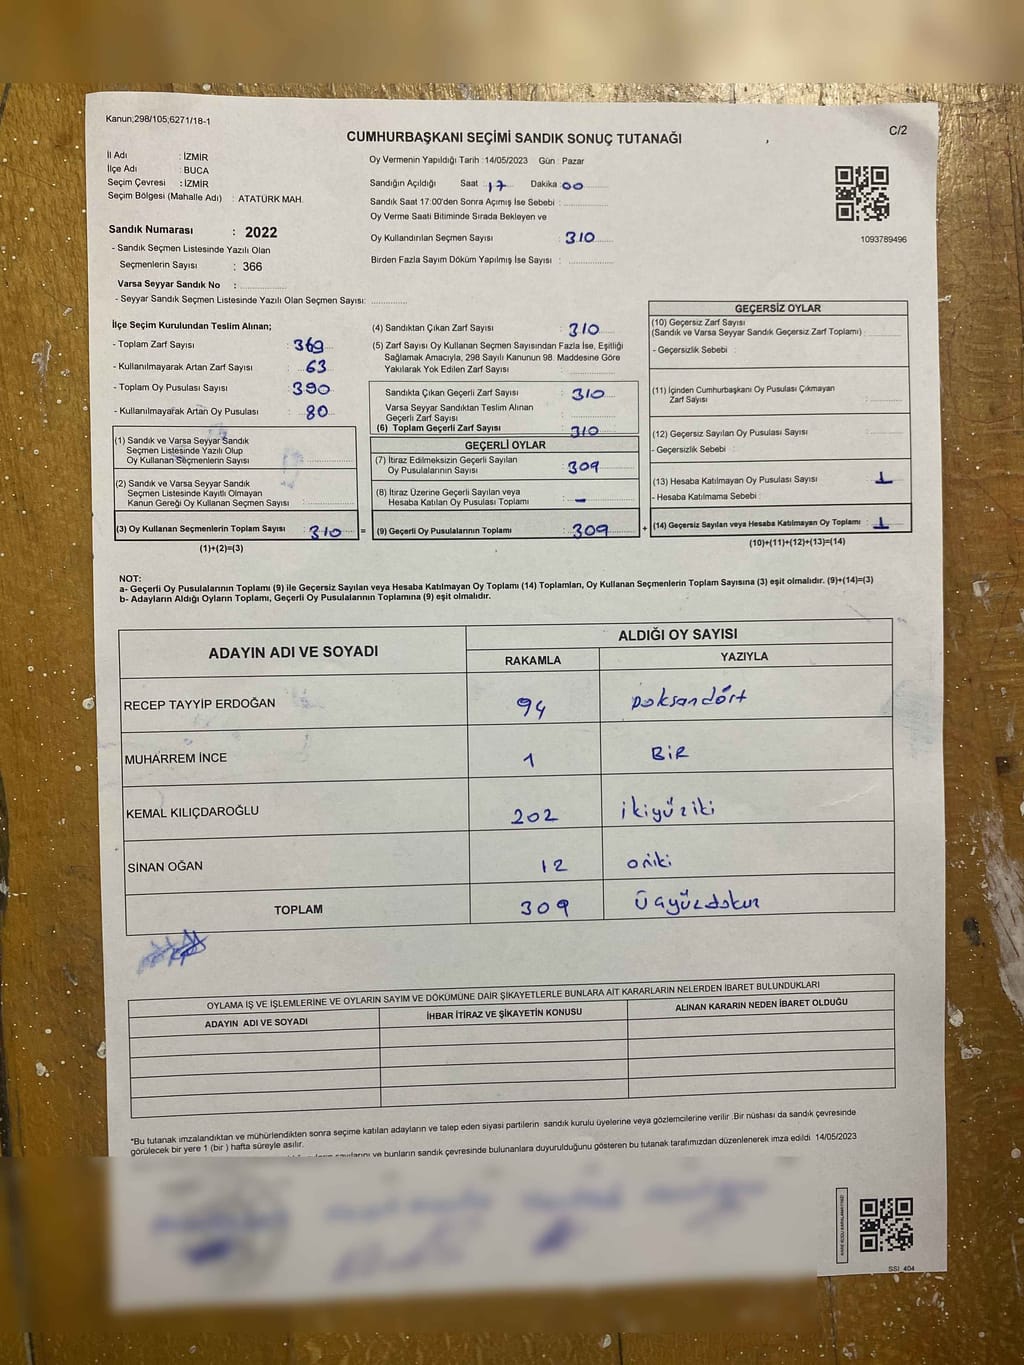 Kanun;298/105;6271/18-1
C/2
CUMHURBAŞKANI SEÇİMİ SANDIK SONUÇ TUTANAĞI
İl Adı : İZMİR
İlçe Adı : BUCA
Seçim Çevresi : İZMİR
Seçim Bölgesi (Mahalle Adı) : ATATÜRK MAH.
Oy Vermenin Yapıldığı Tarih :14/05/2023 Gün : Pazar
Sandığın Açıldığı Saat : 17 Dakika : 00
Sandık Saat 17:00'den Sonra Açımış İse Sebebi :
Oy Verme Saati Bitiminde Sırada Bekleyen ve
Oy Kullandırılan Seçmen Sayısı : 310
Birden Fazla Sayım Döküm Yapılmış İse Sayısı :
1093789496
Sandık Numarası : 2022
- Sandık Seçmen Listesinde Yazılı Olan
Seçmenlerin Sayısı : 366
Varsa Seyyar Sandık No :
- Seyyar Sandık Seçmen Listesinde Yazılı Olan Seçmen Sayısı:
İlçe Seçim Kurulundan Teslim Alınan;
- Toplam Zarf Sayısı : 369
- Kullanılmayarak Artan Zarf Sayısı : 63
- Toplam Oy Pusulası Sayısı : 390
- Kullanılmayarak Artan Oy Pusulası : 80
(1) Sandık ve Varsa Seyyar Sandık
Seçmen Listesinde Yazılı Olup
Oy Kullanan Seçmenlerin Sayısı :
(2) Sandık ve Varsa Seyyar Sandık
Seçmen Listesinde Kayıtlı Olmayan
Kanun Gereği Oy Kullanan Seçmen Sayısı :
(3) Oy Kullanan Seçmenlerin Toplam Sayısı : 310
(1)+(2)=(3)
(4) Sandıktan Çıkan Zarf Sayısı : 310
(5) Zarf Sayısı Oy Kullanan Seçmen Sayısından Fazla İse, Eşitliği
Sağlamak Amacıyla, 298 Sayılı Kanunun 98. Maddesine Göre
Yakılarak Yok Edilen Zarf Sayısı :
Sandıkta Çıkan Geçerli Zarf Sayısı : 310
Varsa Seyyar Sandıktan Teslim Alınan
Geçerli Zarf Sayısı :
(6) Toplam Geçerli Zarf Sayısı : 310
GEÇERLİ OYLAR
(7) İtiraz Edilmeksizin Geçerli Sayılan
Oy Pusulalarının Sayısı : 309
(8) İtiraz Üzerine Geçerli Sayılan veya
Hesaba Katılan Oy Pusulası Toplamı : -
= (9) Geçerli Oy Pusulalarının Toplamı : 309
GEÇERSİZ OYLAR
(10) Geçersiz Zarf Sayısı
(Sandık ve Varsa Seyyar Sandık Geçersiz Zarf Toplamı) :
- Geçersizlik Sebebi :
(11) İçinden Cumhurbaşkanı Oy Pusulası Çıkmayan
Zarf Sayısı :
(12) Geçersiz Sayılan Oy Pusulası Sayısı :
- Geçersizlik Sebebi :
(13) Hesaba Katılmayan Oy Pusulası Sayısı : 1
- Hesaba Katılmama Sebebi :
+ (14) Geçersiz Sayılan veya Hesaba Katılmayan Oy Toplamı : 1
(10)+(11)+(12)+(13)=(14)
NOT:
a- Geçerli Oy Pusulalarının Toplamı (9) ile Geçersiz Sayılan veya Hesaba Katılmayan Oy Toplamı (14) Toplamları, Oy Kullanan Seçmenlerin Toplam Sayısına (3) eşit olmalıdır. (9)+(14)=(3)
b- Adayların Aldığı Oyların Toplamı, Geçerli Oy Pusulalarının Toplamına (9) eşit olmalıdır.
ADAYIN ADI VE SOYADI
ALDIĞI OY SAYISI
RAKAMLA YAZIYLA
RECEP TAYYİP ERDOĞAN 94 Doksandört
MUHARREM İNCE 1 BİR
KEMAL KILIÇDAROĞLU 202 ikiyüziki
SİNAN OĞAN 12 oniki
TOPLAM 309 Üçyüzdokuz
OYLAMA İŞ VE İŞLEMLERİNE VE OYLARIN SAYIM VE DÖKÜMÜNE DAİR ŞİKAYETLERLE BUNLARA AİT KARARLARIN NELERDEN İBARET BULUNDUKLARI
ADAYIN ADI VE SOYADI İHBAR İTİRAZ VE ŞİKAYETİN KONUSU ALINAN KARARIN NEDEN İBARET OLDUĞU
*Bu tutanak imzalandıktan ve mühürlendikten sonra seçime katılan adayların ve talep eden siyasi partilerin sandık kurulu üyelerine veya gözlemcilerine verilir .Bir nüshası da sandık çevresinde
görülecek bir yere 1 (bir ) hafta süreyle asılır.
ve bunların sandık çevresinde bulunanlara duyurulduğunu gösteren bu tutanak tarafımızdan düzenlenerek imza edildi 14/05/2023
SSI_404